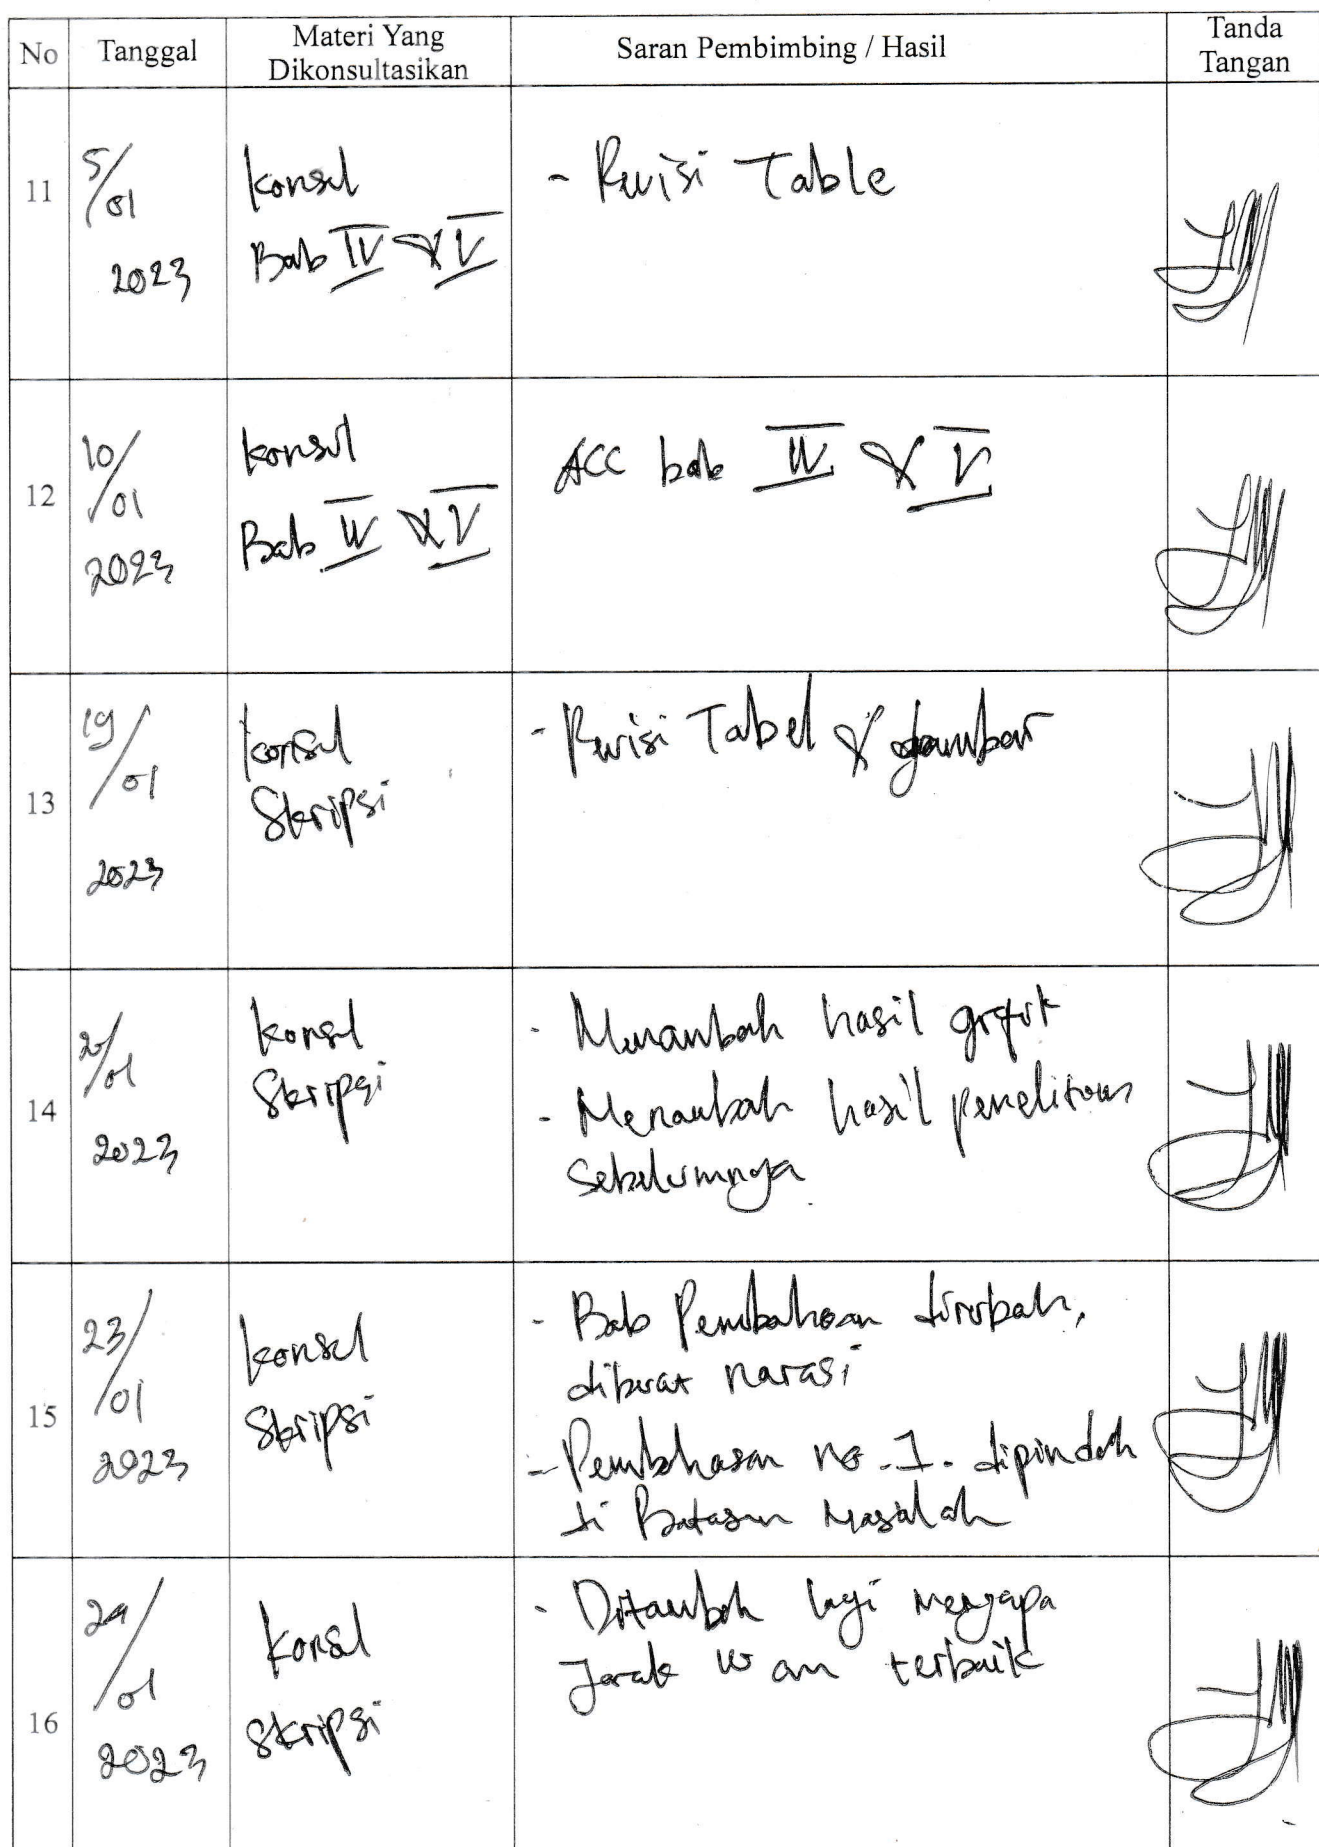 No Tanggal Materi Yang Dikonsultasikan Saran Pembimbing / Hasil Tanda Tangan
11 5/01 2023
Konsul
Bab IV & V
- Revisi Table
12 10/01 2023
Konsul
Bab IV & V
ACC bab IV & V
13 19/01 2023
Konsul
Skripsi
- Revisi Tabel & gambar
14 /01 2023
Konsul
Skripsi
- Menambah hasil grafik
- Menambah hasil penelitian
sebelumnya
15 23/01 2023
Konsul
Skripsi
- Bab Pembahasan dirubah,
dibuat narasi
- Pembahasan no. 1. dipindah
di Batasan Masalah
16 24/01 2023
Konsul
Skripsi
- Ditambah lagi mengapa
Jarak 10 cm terbaik